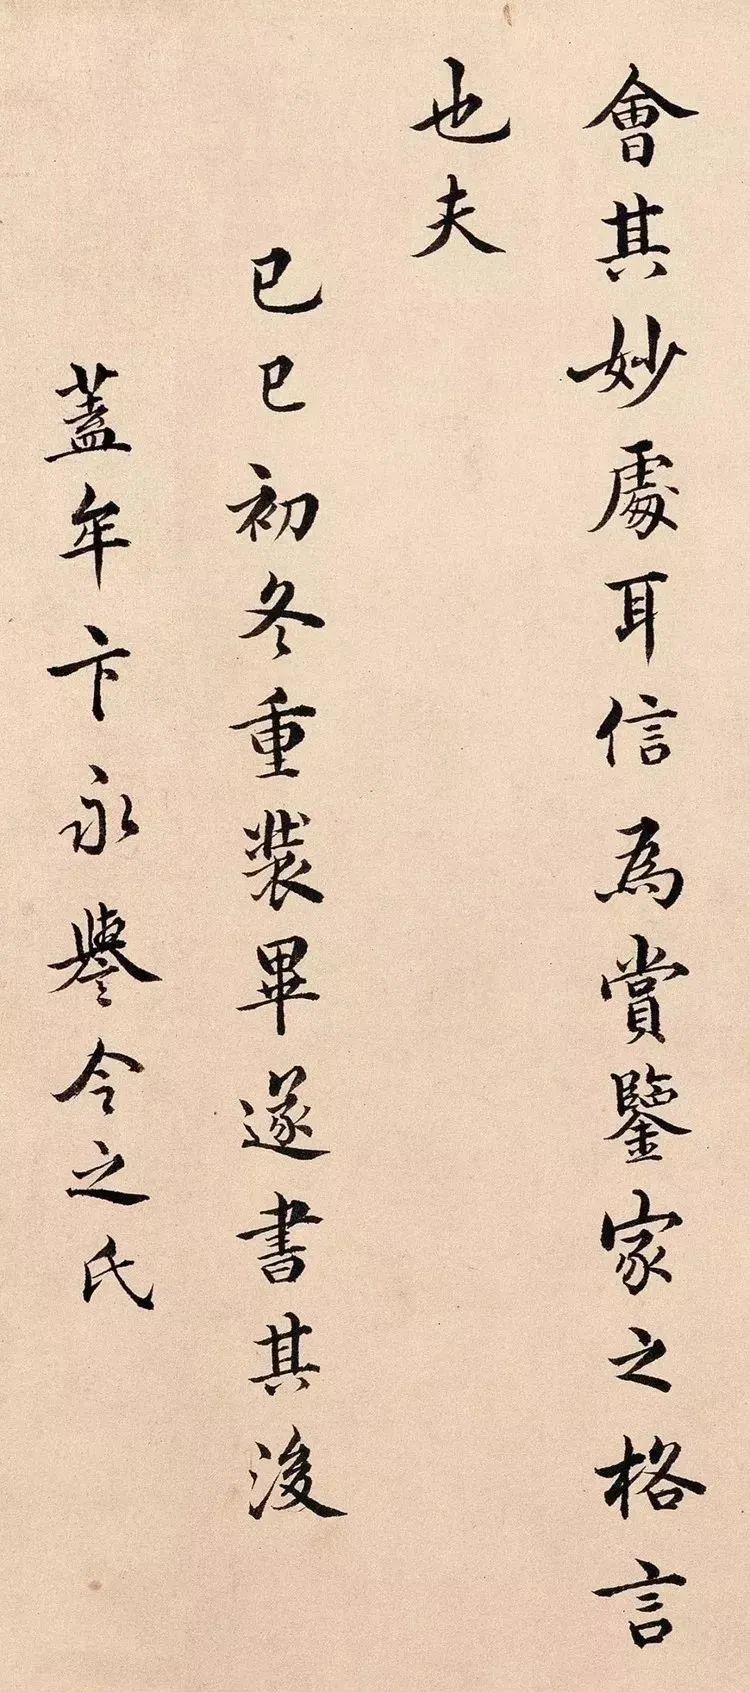 會其妙處耳信為賞鑒家之格言
也夫
己巳初冬重裝畢遂書其後
蓋牟卞永譽令之氏